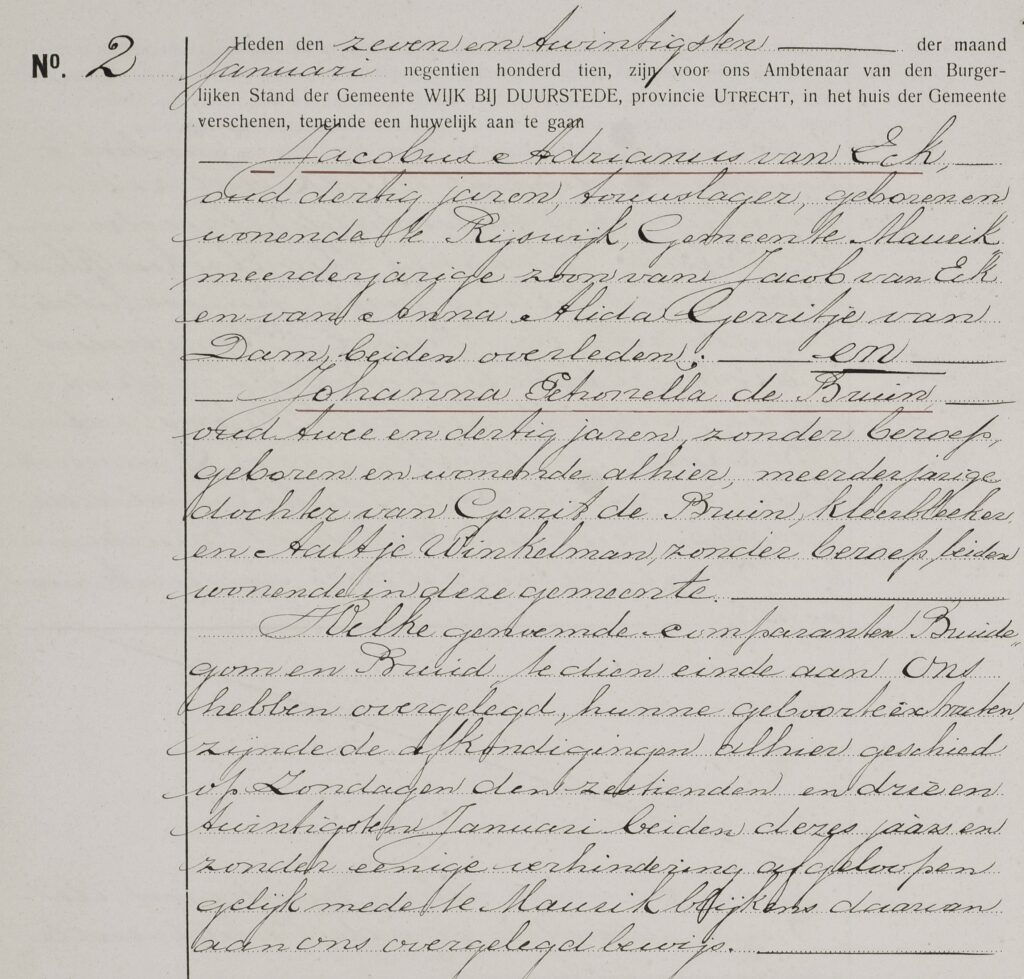 Nº. 2
Heden den zeven en twintigsten der maand
Januari negentien honderd tien, zijn voor ons Ambtenaar van den Burger-
lijken Stand der Gemeente WIJK BIJ DUURSTEDE, provincie UTRECHT, in het huis der Gemeente
verschenen, teneinde een huwelijk aan te gaan
Jacobus Adrianus van Eck,
oud dertig jaren, touwslager, geboren en
wonende te Rijswijk, Gemeente Maurik
meerderjarige zoon van Jacob van Eck
en van Anna Alida Gerritje van
Dam, beiden overleden; en
Johanna Petronella de Bruin,
oud twee en dertig jaren, zonder beroep,
geboren en wonende alhier, meerderjarige
dochter van Gerrit de Bruin, kleerbleeker
en Aaltje Winkelman, zonder beroep, beiden
wonende in deze gemeente.
Welke genoemde comparanten Bruide=
gom en Bruid, te dien einde aan Ons
hebben overgelegd, hunne geboorteextracten,
zijnde de afkondigingen alhier geschied
op Zondagen den zestienden en drie en
twintigsten Januari beiden dezes jaars en
zonder eenige verhindering afgeloopen
gelijk mede te Maurik blijkens daarvan
aan ons overgelegd bewijs.